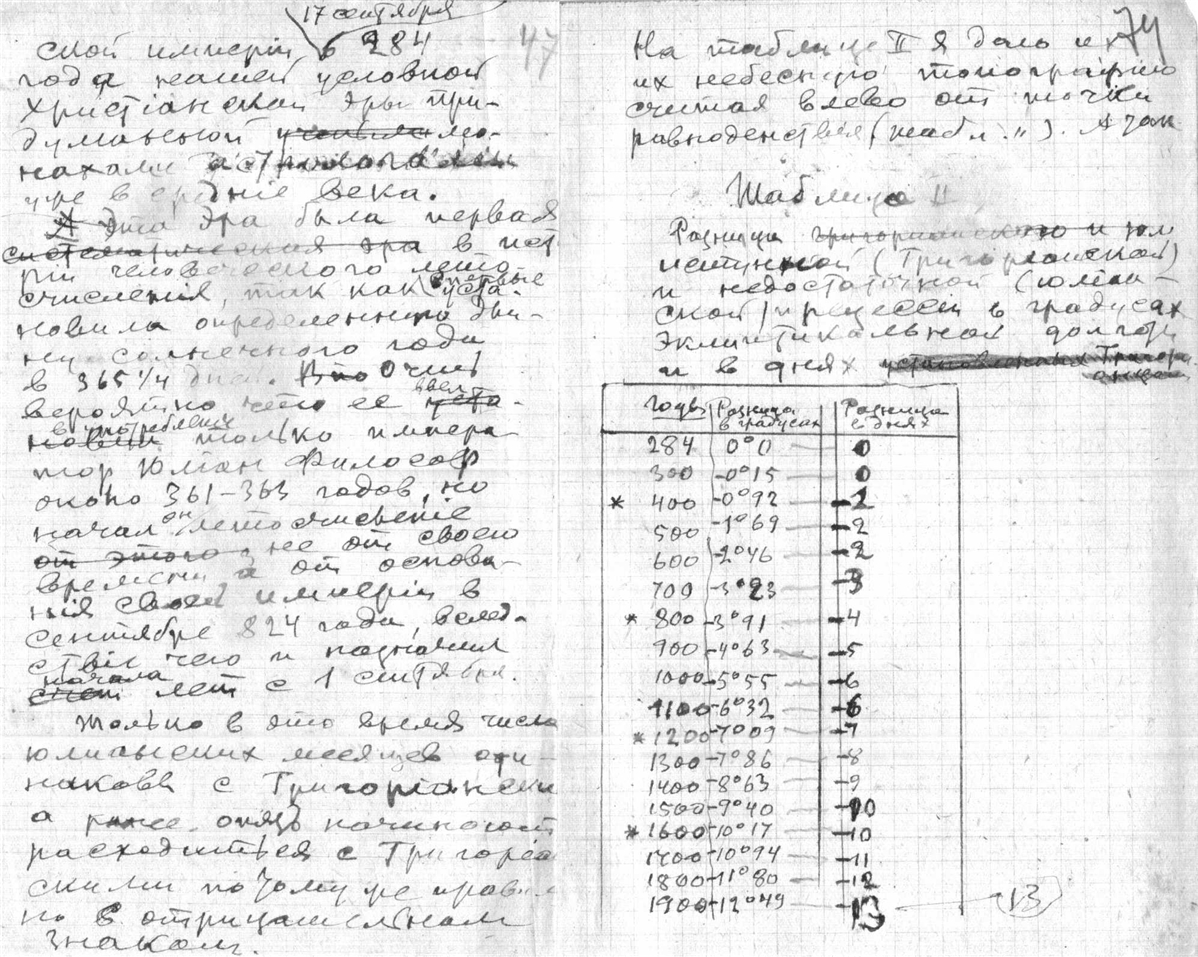 17 сентября
47
ской имперіи в 284
года нашей условной
Христіанской эры при-
думанной мо-
нахами
уже в средніе века.
А Эта эра была первая
систематическая эра в ист
ріи человеческого лето
счисления, так как впервые уста-
новила определенную дли-
ну солнечного года
в 365 1/4 дня. Очень
вероятно что ее ввел
в употребление только импера
тор Юліан Философ
около 361-363 годов, но
начал он летосчисленіе
от этого не от своего
времени а от основа-
нія своей имперіи в
сентябре 824 года, вслед-
ствіе чего и назначил
начала лет с 1 сентября.
Только в это время числа
юлианских месяцев оди-
наковы с Григоріански
а ранее опять начинают
расходиться с Григоріа
скими по тому же прави
но в отрицательном
знаком.
74
На таблице II я даю и
их небесную топографію
считая влево от точки
равноденствія (табл. II). А так
Таблица II
Разница
истинной (Григоріанской)
и недостаточной (юліан-
ской) прецесси в градусах
Эклиптикальной долготы
и в днях установленных Григорі
анцем
Годы Разница в градусах Разница в днях
284 0°0 — 0
300 -0°15 — 0
* 400 -0°92 — -1
500 -1°69 — -2
600 -2°46 — -2
700 -3°23 — -3
* 800 -3°91 — -4
900 -4°63 — -5
1000 -5°55 — -6
1100 -6°32 — -6
* 1200 -7°09 — -7
1300 -7°86 — -8
1400 -8°63 — -9
1500 -9°40 — -10
* 1600 -10°17 — -10
1700 -10°94 — -11
1800 -11°80 — -12
1900 -12°49 — -13 — 13